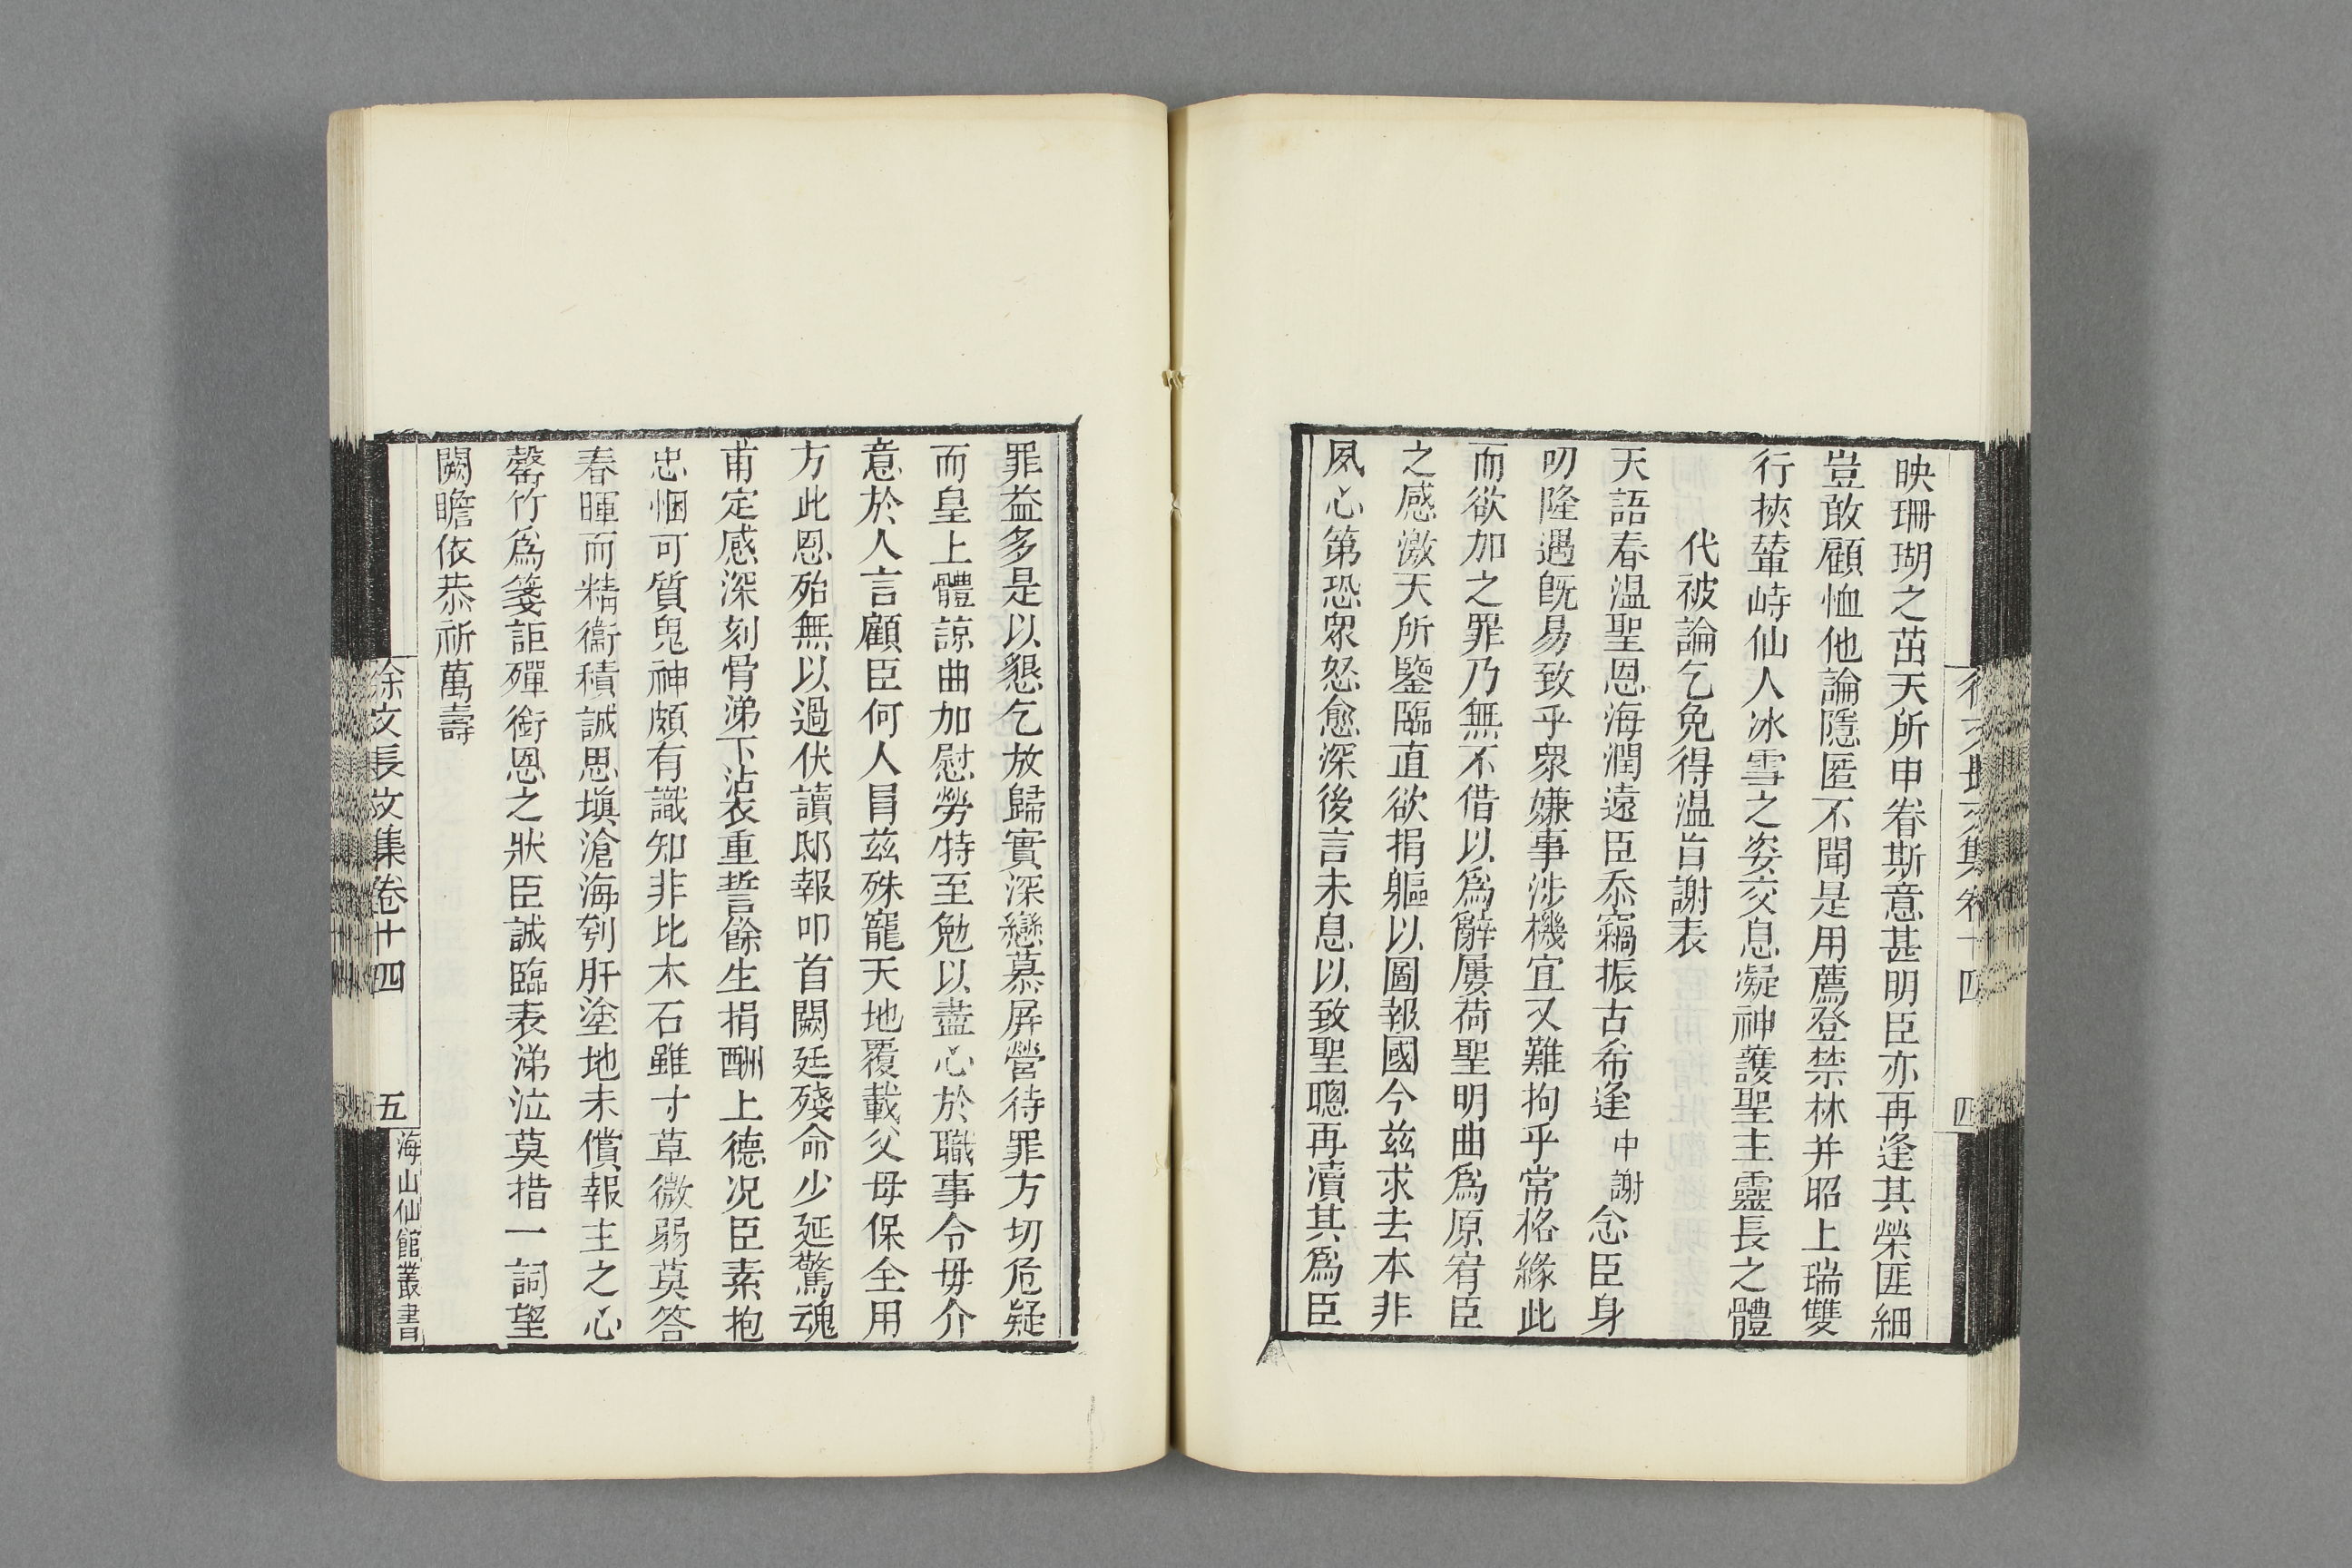 映珊瑚之茁天所申眷斯意甚明臣亦再逢其榮匪細
豈敢顧恤他論隱匿不聞是用薦登禁林并昭上瑞雙
行挾輦峙仙人冰雪之姿交息凝神護聖主靈長之體
代被論乞免得温旨謝表
天語春温聖恩海潤遠臣忝竊振古希逢中謝念臣身
叨隆遇旣易致乎衆嫌事涉機宜又難拘乎常格緣此
而欲加之罪乃無不借以爲辭屢荷聖明曲爲原宥臣
之感激天所鑒臨直欲捐軀以圖報國今茲求去本非
夙心第恐衆怒愈深後言未息以致聖聰再瀆其爲臣
徐文長文集卷十四 四
罪益多是以懇乞放歸實深戀慕屏營待罪方切危疑
而皇上體諒曲加慰勞特至勉以盡心於職事令毋介
意於人言顧臣何人冐茲殊寵天地覆載父母保全用
方此恩殆無以過伏讀邸報叩首闕廷殘命少延驚魂
甫定感深刻骨涕下沾衣重誓餘生捐酬上德况臣素抱
忠悃可質鬼神頗有識知非比木石雖寸草微弱莫答
春暉而精衞積誠思塡滄海刳肝塗地未償報主之心
罄竹爲箋詎殫銜恩之狀臣誠臨表涕泣莫措一詞望
闕瞻依恭祈萬壽
徐文長文集卷十四 五 海山仙館叢書